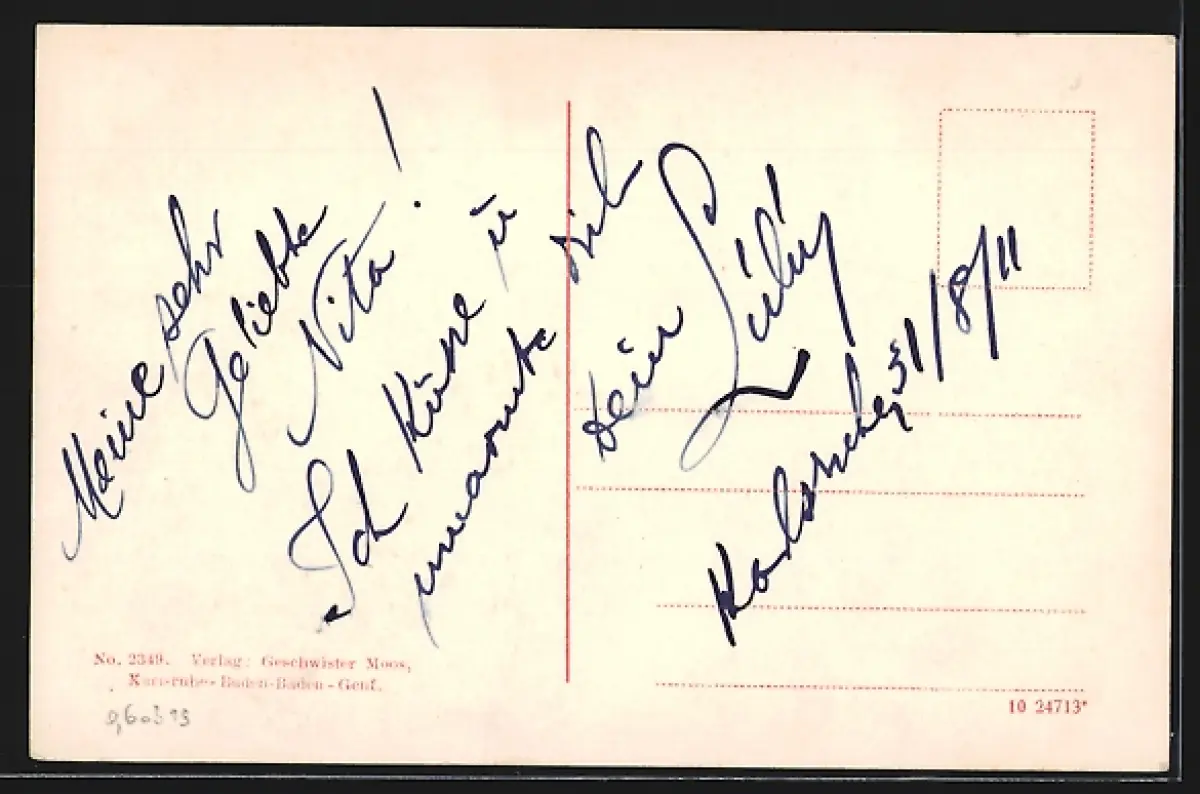 Meine sehr
Geliebte
Nita!
Ich Küsse u
umarmte dich
Dein
31/8/11
No. 2349. Verlag: Geschwister Moos,
Karlsruhe-Baden-Baden-Genf.
10 24713*